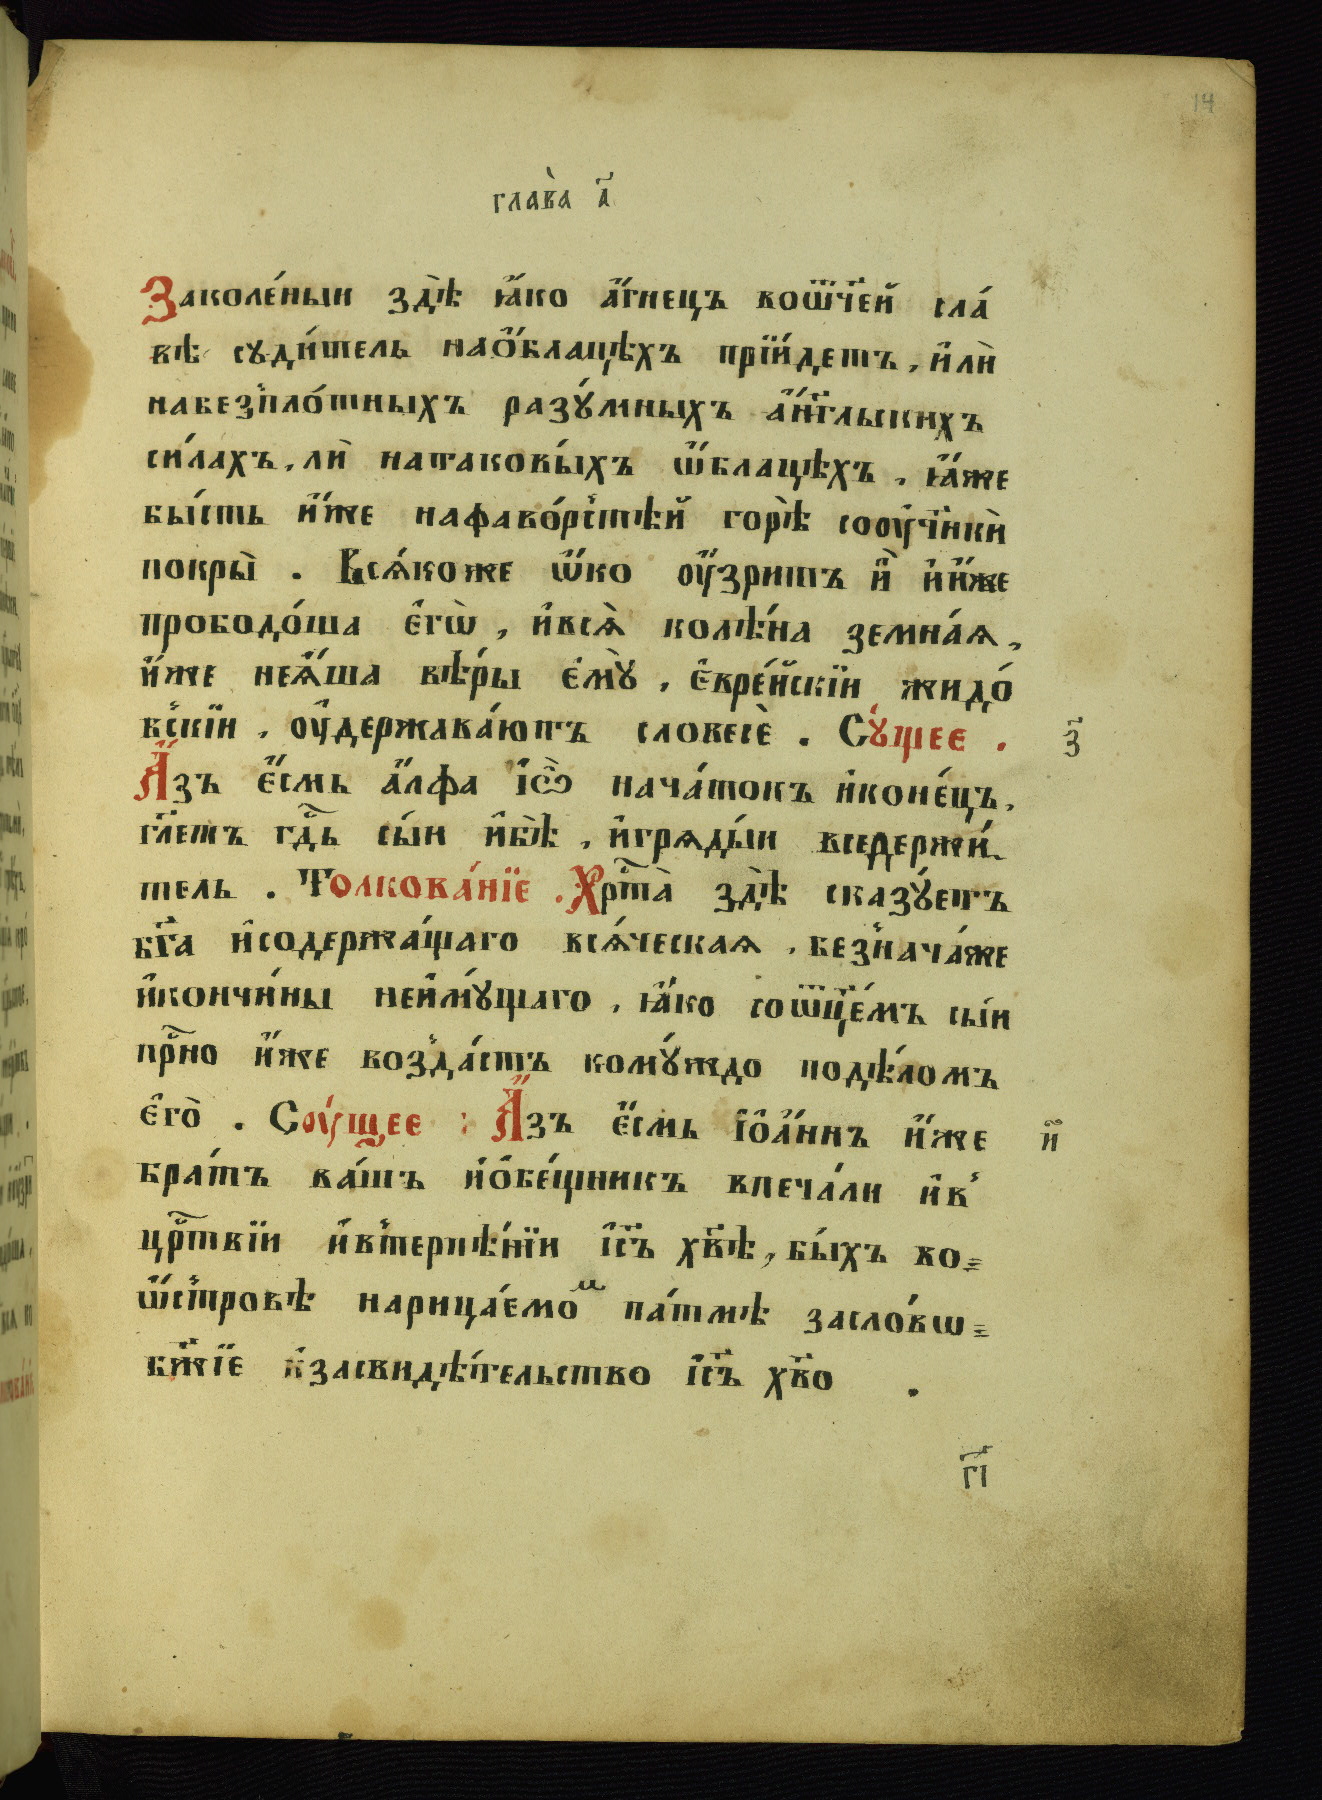 14
глава̀ а҃
Заколе́ныи здѣ̀ ꙗ҆́ко а҆́гнецъ воѿч҃ей сла́
вѣ суди́тель нао҆́блацѣхъ прїи́детъ, и҆лѝ
набезпло́тныхъ разꙋ́мныхъ а҆́нг҃льскихъ
си́лахъ, лѝ натаковы́хъ ѡ҆́блацѣхъ, ꙗ҆́же
бы́сть и҆́же нафаво́рстѣй го́рѣ соѹч҃нкѝ
покры̀ . Вся́коже ѡ҆́ко ѹ҆́зритъ и҆̀ и҆и҆́же
прободо́ша є҆гѡ̀, и҆всѧ̀ колѣ́на земна́ѧ,
и҆́же неꙗ҆́ша вѣ́ры є҆мꙋ̀, є҆вре́йскїи жидо́
вскїи, ѹ҆держава́ютъ словесѐ . Сꙋ́щее .
з҃
А҆́зъ є҆́смь а҆́лфа і҆ѽ нача́токъ и҆коне́цъ,
гл҃етъ гд҇ь сы́и и҆бѣ̀, и҆гряды́и вседержи́
тель . Толкова́нїе . Хр҇та̀ здѣ̀ сказꙋ́етъ
бг҃а и҆содержа́щаго вся́ческаѧ, безнача́же
и҆кончи́ны неи҆мꙋ́щаго, ꙗ҆́ко соѿц҃е́мъ сы́и
пр҇но и҆́же возда́стъ комꙋ́ждо подѣ́ломъ
є҆го̀ . Сѹ́щее : А҆́зъ є҆́смь і҆ѻа́ннъ и҆́же
и҃
бра́тъ ва́шъ и҆ѻ҆бе́щникъ впеча́ли и҆в
цр҇твїи и҆втерпѣ́нїи і҆с҃ъ хв҃ѣ, бы́хъ во=
ѡ҆́стровѣ нарица́емом па́тмѣ засло́вѡ=
бж҃їе и҆засвидѣ́тельство і҆с҃ъ хв҃о .
г҃і